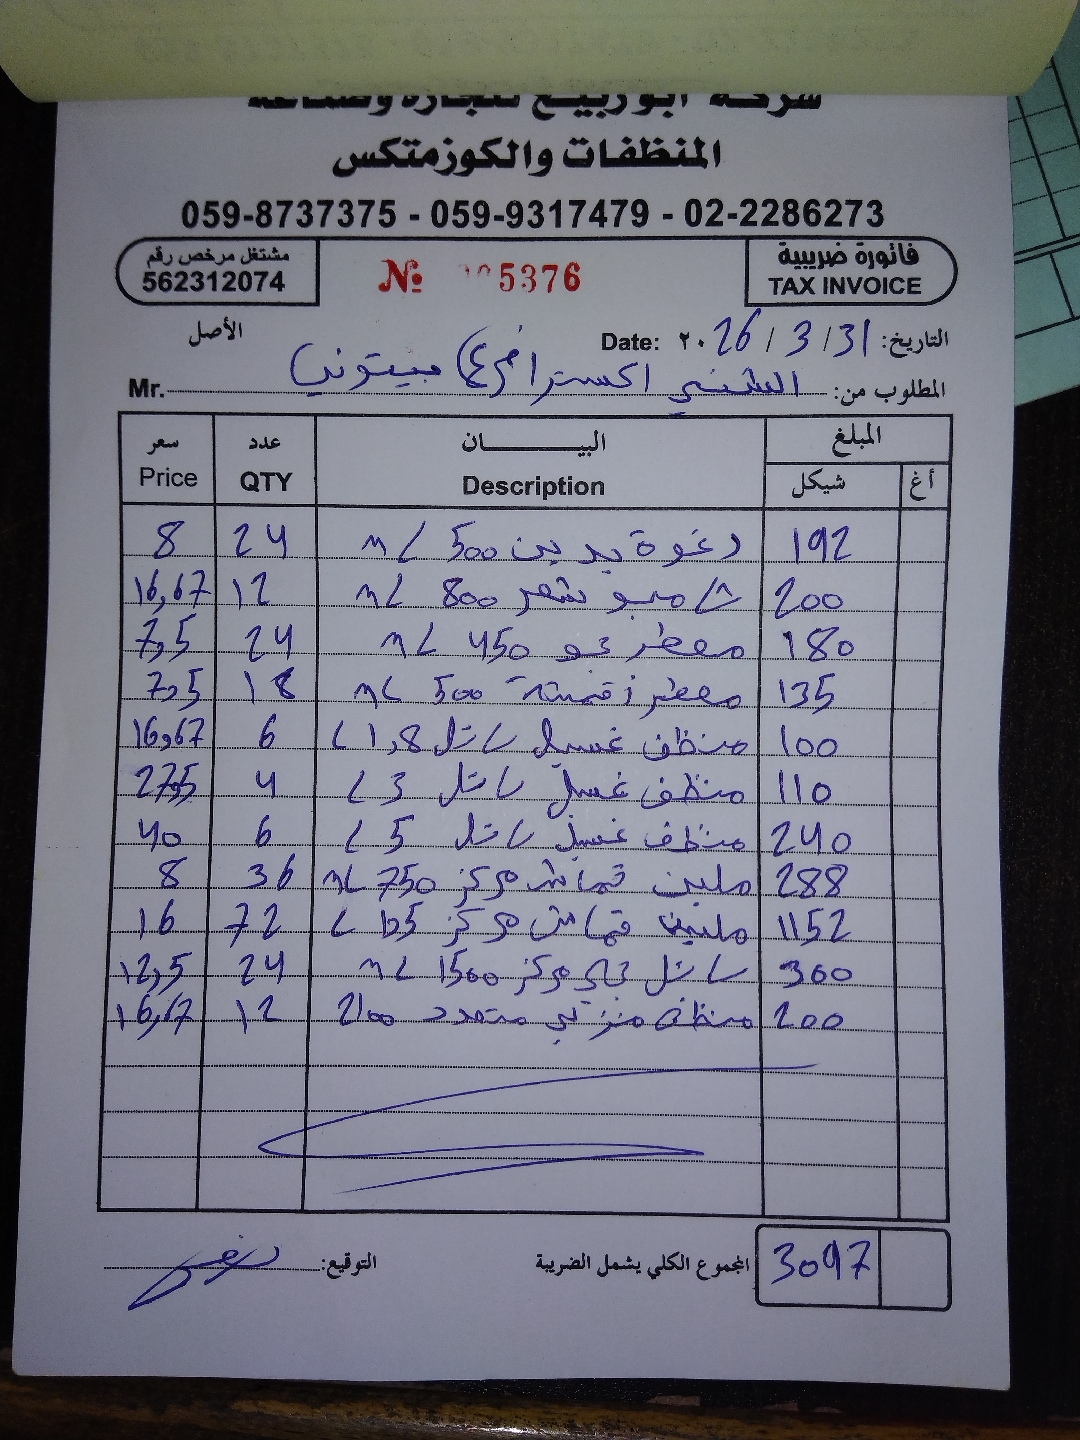 شركة ابو ربيع للتجارة وصناعة
المنظفات والكوزمتكس
059-8737375 - 059-9317479 - 02-2286273
مشتغل مرخص رقم
562312074
№ 5376
فاتورة ضريبية
TAX INVOICE
الأصل
التاريخ: 31/3/2026 Date:
المطلوب من: الشني اكسترا فرع بيتونيا Mr.
سعر Price عدد QTY البيان Description المبلغ شيكل أغ
8 24 رغوة يدين 500 mL 192
16,67 12 شامبو شعر 800 mL 200
7,5 24 معطر جو 450 mL 180
7,5 18 معطر اقمشة 500 mL 135
16,67 6 منظف غسيل سائل 1,8 L 100
27,5 4 منظف غسيل سائل 3 L 110
40 6 منظف غسيل سائل 5 L 240
8 36 ملين قماش مركز 750 mL 288
16 72 ملين قماش مركز L 1152
12,5 24 سائل جلي مركز 1500 mL 300
16,67 12 منظف منزلي متعدد 200
المجموع الكلي يشمل الضريبة 3097
التوقيع: